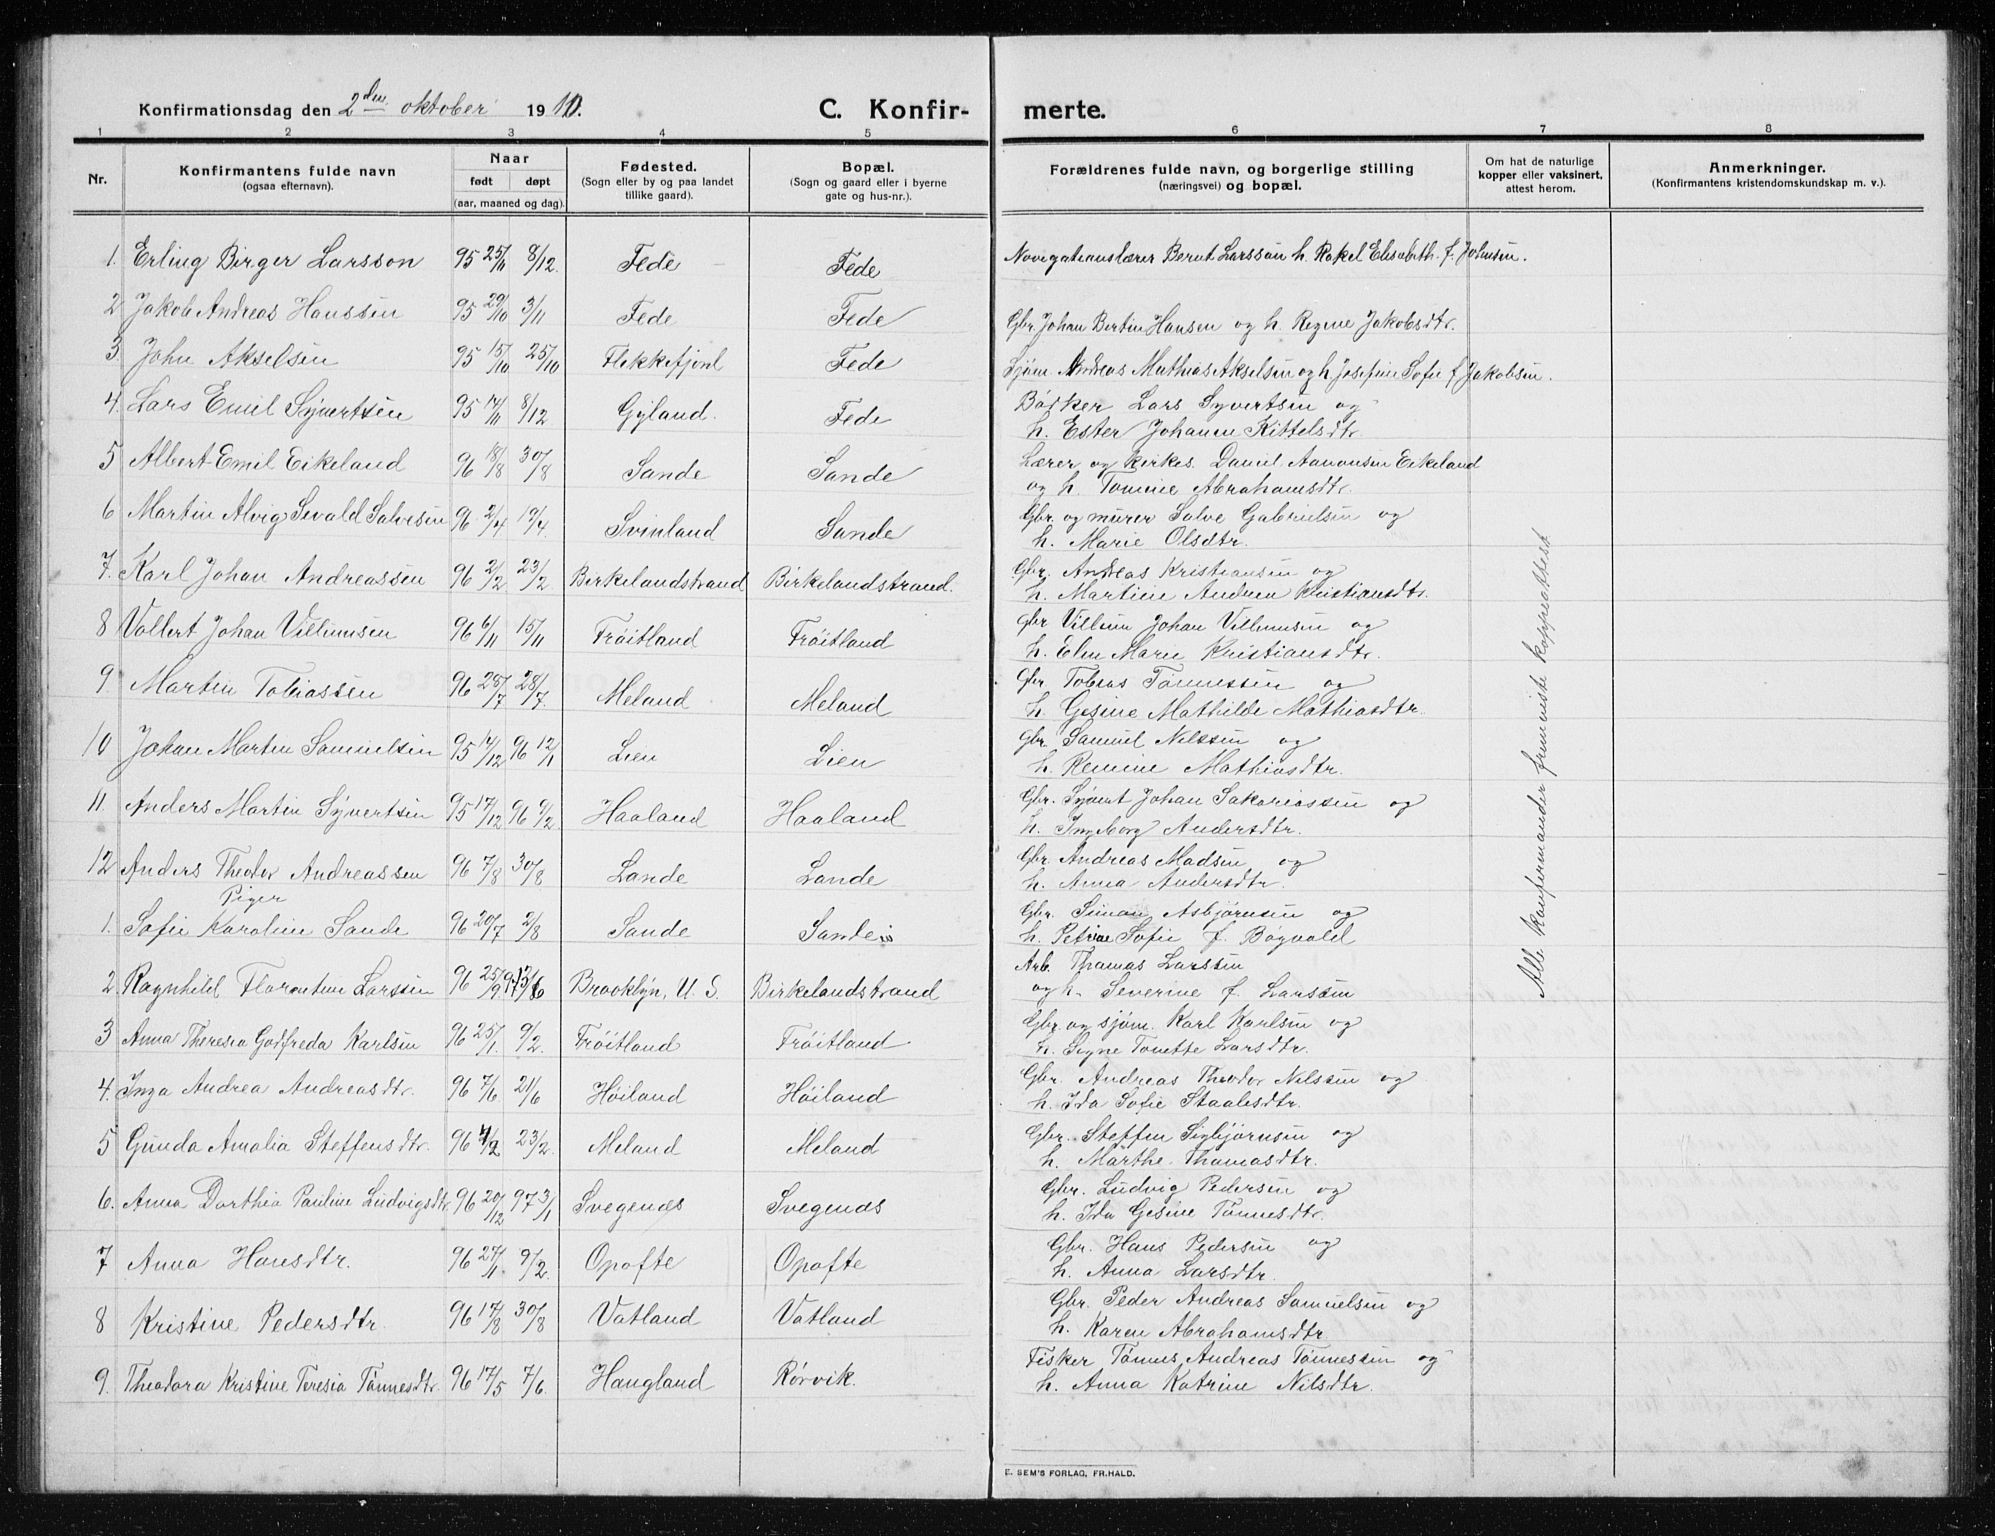 Konfirmationsdag den 2den oktober 1910.
C. Konfir- merte.
1 2 3 4 5 6 7 8
Nr.
Konfirmantens fulde navn
(ogsaa efternavn).
Naar
født døpt
(aar, maaned og dag).
Fødested.
(Sogn eller by og paa landet
tillike gaard).
Bopæl.
(Sogn og gaard eller i byerne
gate og hus-nr.).
Forældrenes fulde navn, og borgerlige stilling
(næringsvei) og bopæl.
Om hat de naturlige
kopper eller vaksinert,
attest herom.
Anmerkninger.
(Konfirmantens kristendomskundskap m. v.).
1. Erling Birger Larsson 95 25/11 8/12. Fede Fede Navigationslærer Bernt Larsson h. Rakel Elisabeth. f. Johnsen.
2 Jakob Andreas Hanssen 95 29/10 3/11 Fede Fede Gbr. Johan Bertin Hansen og h. Regine Jakobsdtr.
3. John Akselsen 95 15/10 25/10 Flekkefjord Fede Sjøm. Andreas Mathias Akselsen og h Josefine Sofie f Jakobsen.
4. Lars Emil Syvertsen 95 14/11 8/12 Gyland. Fede Bødker Lars Syvertsen og
h. Ester Johanne Kittelsdtr.
5 Albert Emil Eikeland 96 18/8 30/8 Sande Sande Lærer og kirkes. Daniel Aanonsen Eikeland
og h. Tomine Abrahamsdtr.
6 Martin Alvig Sevald Salvesen 96 2/4 19/4. Svinland Sande Gbr. og murer Salve Gabrielsen og
h. Marie Olsdtr.
7. Karl Johan Andreassen 96 2/2 23/2 Birkelandstrand Birkelandstrand. Gbr. Andreas Kristiansen og
h. Martine Andrea Kristiansdtr.
8 Vollert Johan Villumsen 96 6/11 15/11 Frøitland Frøitland Gbr Villum Johan Villumsen og
h. Elen Marie Kristiansdtr.
9 Martin Tobiassen 96 25/7 28/7. Meland Meland Gbr. Tobias Tønnessen og
h. Gesine Mathilde Mathiasdtr.
10 Johan Martin Samuelsen 95 14/12 96 12/1 Lien Lien Gbr. Samuel Nilssen og
h. Remine Mathiasdtr.
11. Anders Martin Syvertsen 95 17/12 96 9/2. Haaland Haaland Gbr. Syvert Johan Sakariassen og
h. Ingeborg Andersdtr.
12 Anders Theodor Andreassen 96 7/8 30/8 Lande Lande Gbr. Andreas Madsen og
h. Anna Andersdtr.
Piger
1. Sofie Karoline Sande 96 20/7 2/8 Sande Sande Gbr. Simon Asbjørnsen og
h. Petrine Sofie f. Bøgvald
2. Ragnhild Florentine Larsen 96 25/9 97 13/6 Brooklyn, U. S. Birkelandstrand Arb. Thomas Larssen
og h. Severine f. Larssen
3 Anna Theresia Godfreda Karlsen 96 25/1. 9/2. Frøitland Frøitland Gbr og sjøm. Karl Karlsen og
h. Signe Tonette Larsdtr.
4. Inga Andrea Andreasdtr. 96 7/6 21/6 Høiland Høiland Gbr. Andreas Theodor Nilssen og
h. Ida Sofie Staalesdtr.
5 Gunda Amalia Steffensdtr. 96 4/2 23/2. Meland Meland Gbr. Steffen Sigbjørnsen og
h. Marthe Thomasdtr.
6. Anna Dorthea Pauline Ludvigsdtr. 96 20/12 97 3/1 Svegenes Svegenes Gbr. Ludvig Pedersen og
h. Ida Gesine Tønnesdtr.
7 Anna Hansdtr. 96 24/1. 9/2. Opofte Opofte Gbr. Hans Pedersen og
h. Anna Larsdtr.
8 Kristine Pedersdtr. 96 14/8 30/8 Vatland Vatland Gbr. Peder Andreas Samuelsen og
h. Karen Abrahamsdtr.
9. Theodora Kristine Teresia Tønnesdtr. 96 17/5 7/6. Haugland Rørvik. Fisker Tønnes Andreas Tønnessen og
h. Anna Katrine Nilsdtr.
Alle konfermander fremviste koppeattest
E. SEM'S FORLAG, FR.HALD.